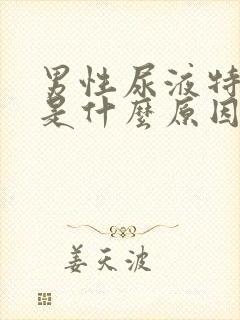 男性尿液特
是什麼原因
姜天波